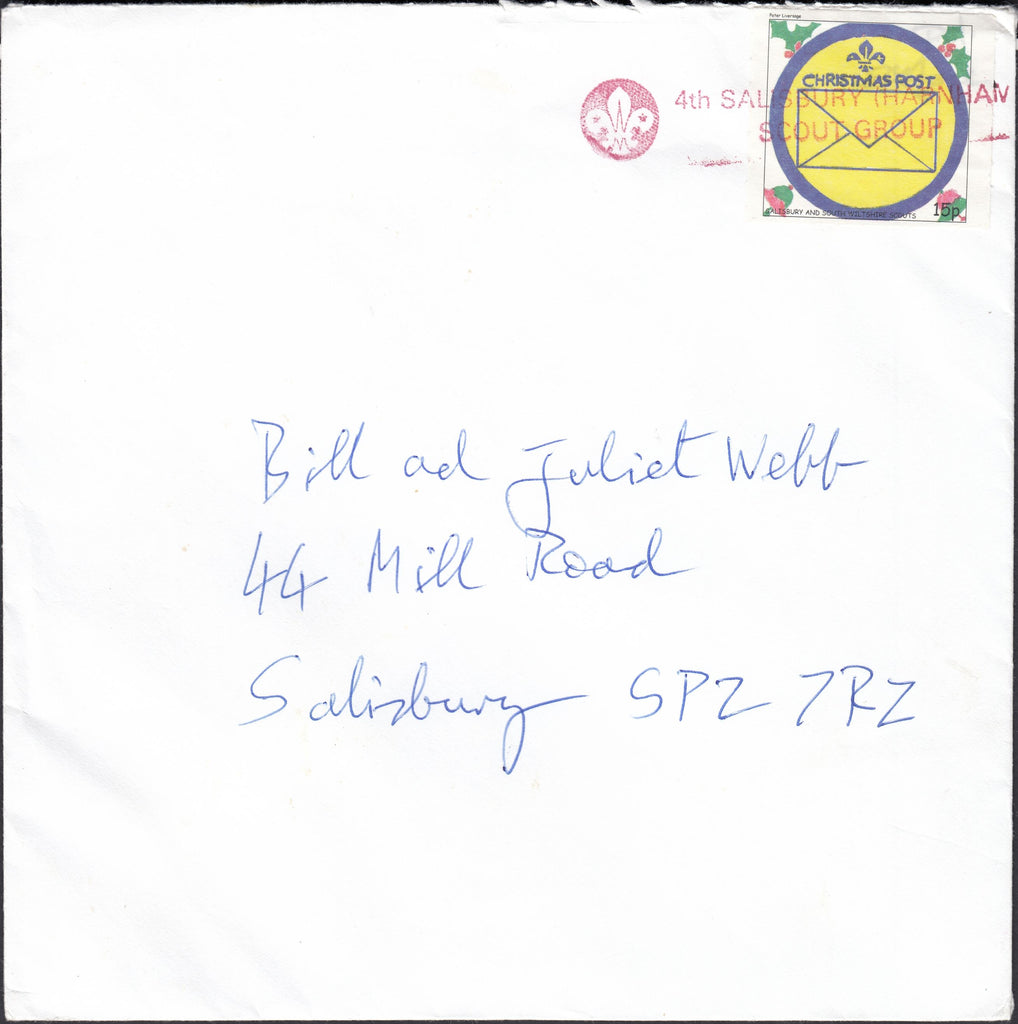 Peter Liversage
CHRISTMAS POST
4th SALISBURY (HARNHAM
SCOUT GROUP
SALISBURY AND SOUTH WILTSHIRE SCOUTS 15p
Bill ad Juliet Webb
44 Mill Road
Salisbury SP2 7RZ